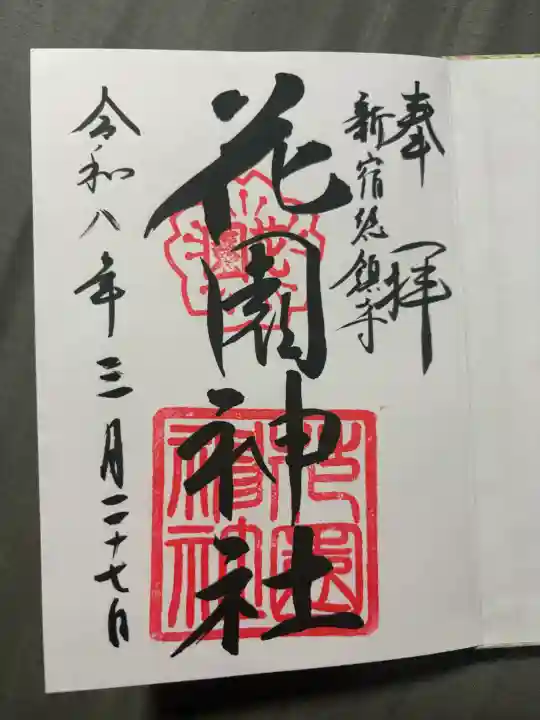 奉拝
新宿総鎮守
花園神社
令和八年三月二十七日